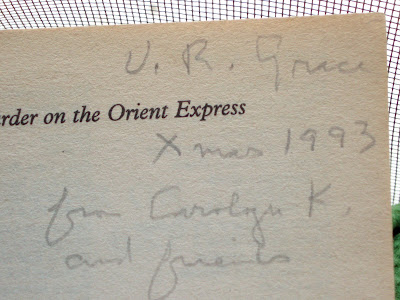 V. R. Grace
rder on the Orient Express
Xmas 1993
from Carolyn K.
and friends